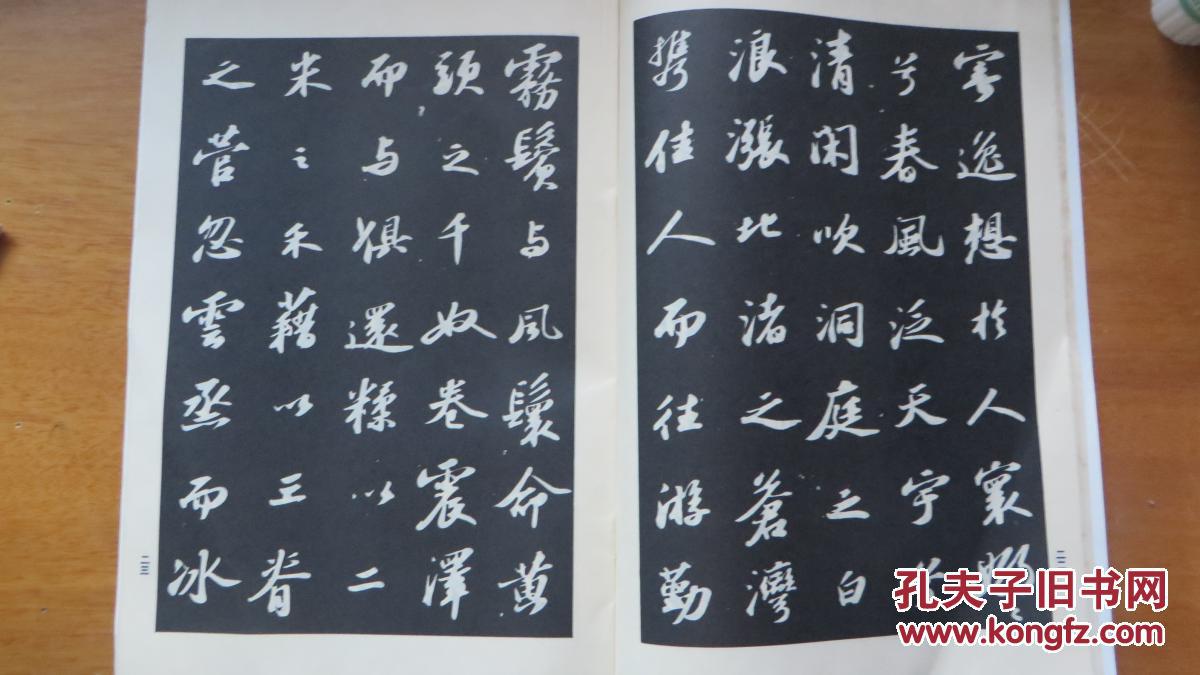 寄逸想於人寰嫋〻
兮春風泛天宇兮
清閑吹洞庭之白
浪漲北渚之蒼灣
攜佳人而往游勤
霧鬢与風鬟命黄
頭之千奴卷震澤
而与俱還糅以二
米之禾藉以三脊
之菅忽雲烝而冰
二三
孔夫子旧书网
www.kongfz.com